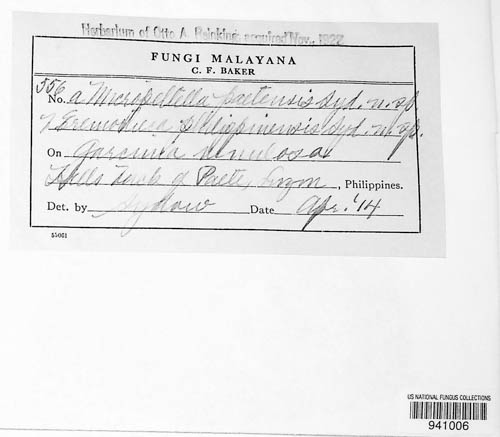 Herbarium of Otto A. Reinking, acquired Nov., 1922
FUNGI MALAYANA
C. F. BAKER
556
No. a Micropeltella paetensis Syd. n. sp
Eremotheca philippinensis Syd. n. sp.
On Garcinia venulosa
Hills back of Paete, Luzon, Philippines.
Det. by Sydow Date Apr. '14
55061
US NATIONAL FUNGUS COLLECTIONS
941006